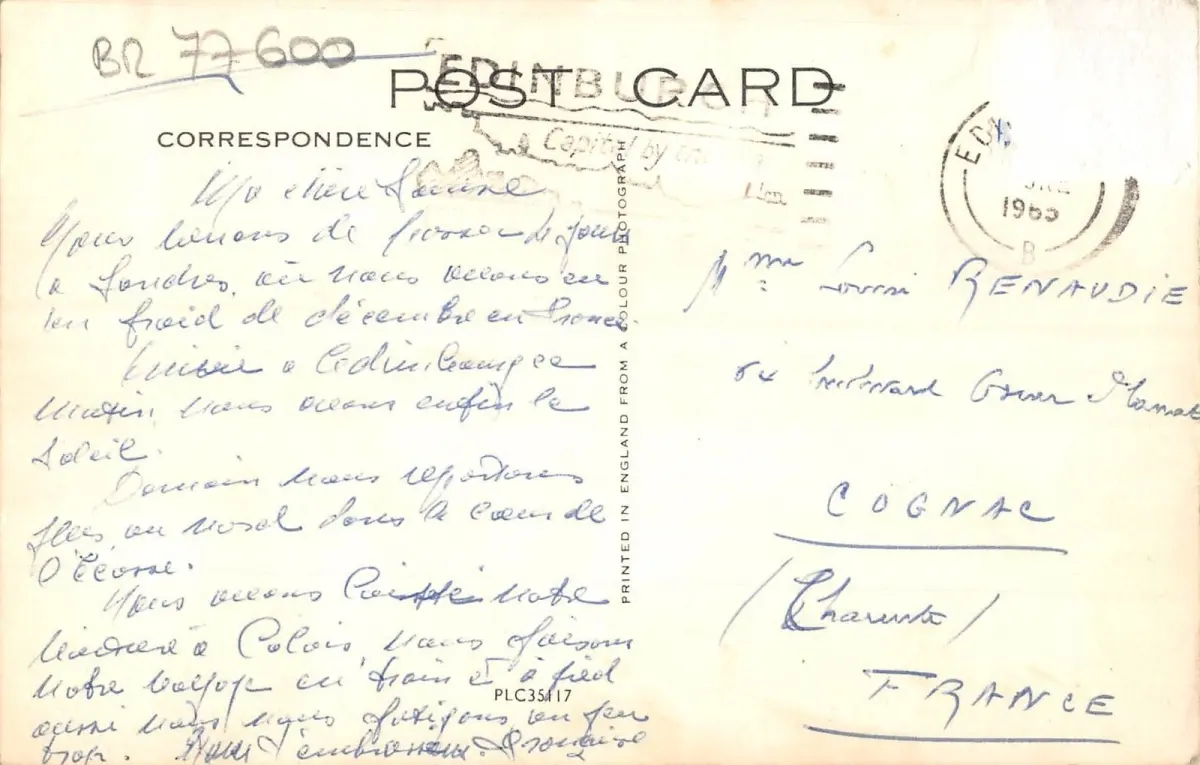 BR 77600
EDINBURGH
POST CARD
Capital by
CORRESPONDENCE
1965
B
Ma chère Louise
Nous venons de passer de jours
à Londres, où nous avons eu
un froid de décembre en France.
à Edimbourg ce
matin, nous avons enfin le
soleil.
Demain nous repartons
plus au nord dans le cœur de
l'Écosse.
Nous avons laissé notre
à Calais, nous faisons
notre voyage en train et à pied
aussi nous nous fatigons un peu
trop. Nous t'embrassons.
Mme Louise RENAUDIE
boulevard Oscar
COGNAC
(Charente)
FRANCE
PRINTED IN ENGLAND FROM A COLOUR PHOTOGRAPH
PLC35117